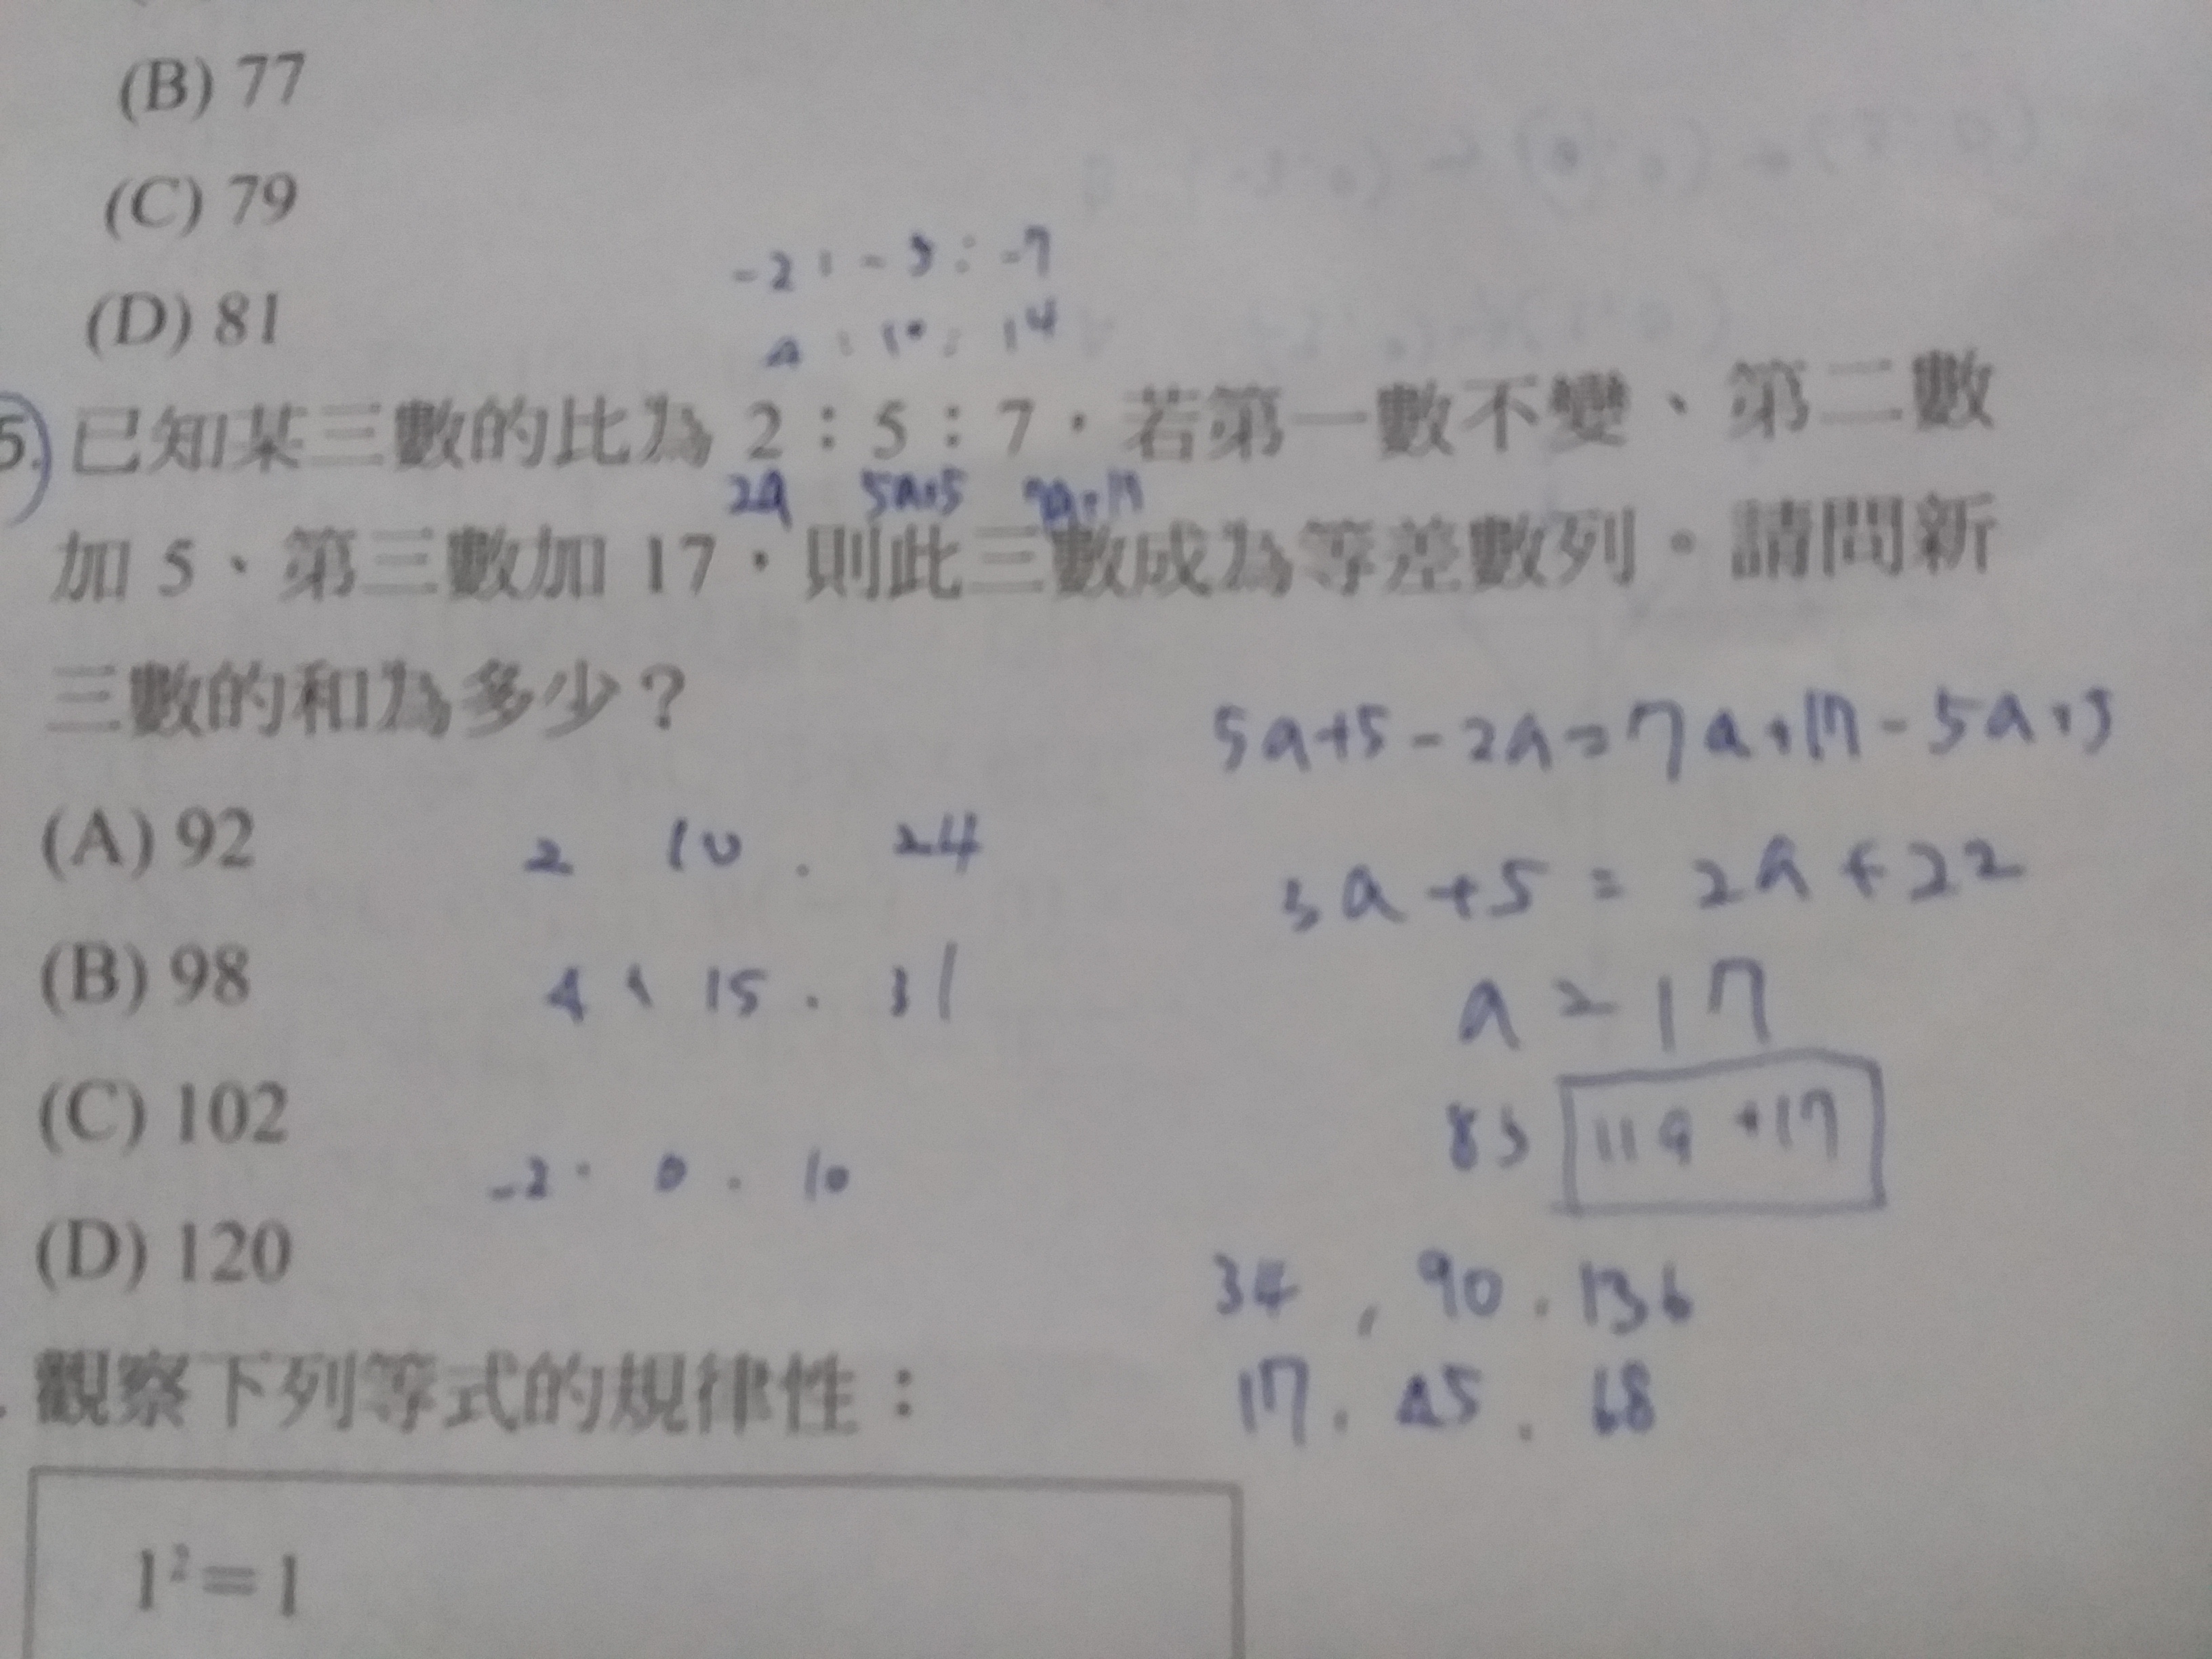 (B) 77
(C) 79
(D) 81
-2 : -5 : -7
4 : 10 : 14
5. 已知某三數的比為 2：5：7，若第一數不變、第二數
2a 5a+5 7a+17
加 5、第三數加 17，則此三數成為等差數列。請問新
三數的和為多少？
5a+5-2a=7a+17-5a+5
(A) 92
2 10 . 24
3a+5=2a+22
(B) 98
4 , 15 . 31
a=17
(C) 102
85 119+17
-2 . 0 . 10
(D) 120
34 , 90 . 136
觀察下列等式的規律性：
17 . 45 . 68
1²=1